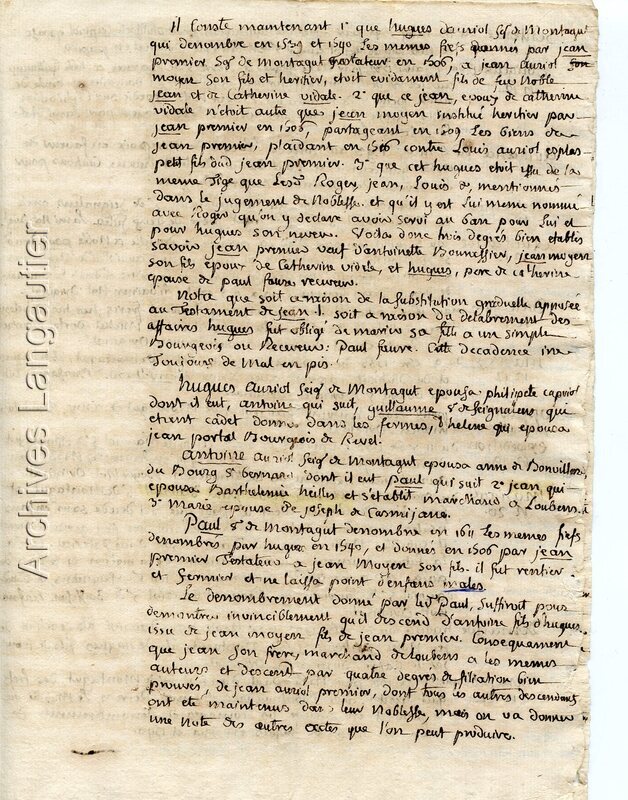 Il Conste maintenant 1° que hugues d'auriol sgr de Montagut
qui denombre en 1539 et 1540 Les memes fiefs donnés par jean
premier Sgr de Montagut testateur en 1506, a jean auriol
moyen Son fils et heritier, etoit evidament fils de feu Noble
jean et de Catherine vidale. 2° que ce jean, epoux de catherine
vidale n'etoit autre que jean moyen institué heritier par
jean premier en 1506, partageant en 1509 Les biens de
jean premier, plaidant en contre Louis auriol
petit fils dud jean premier. 3° que cet hugues etoit issu de la
meme Tige que Les Roger, jean, Louis &, mentionnes
dans le jugement de Noblesse. et qu'il y est Lui meme nommé
avec Roger qu'on y declare avoir servi au ban pour Lui et
pour hugues son neveu. Voila donc trois degrés bien etablis
Savoir jean premier veuf d'antoinette jean moyen
son fils epoux de Catherine vidale, et hugues, pere de catherine
epouse de paul faure receveur.
Nota que soit a raison de la Substitution graduelle apposée
au Testament de jean 1. soit a raison du delabrement des
affaires hugues fut obligé de marier sa fille a un simple
Bourgeois ou Receveur: Paul faure. Cette decadence ira
Toujours de Mal en pis.
hugues auriol Seigr de Montagut epousa philipete capriol
dont il eut, antoine qui suit, guillaume, sr de Seignalens qui
etient cadet donna dans les fermes, & helene qui epousa
jean portal Bourgeois de Revel.
antoine auriol Seigr de Montagut epousa anne de Bonvillar
du Bourg St bernard dont il eut Paul qui suit 2° jean qui
epousa Barthelemie et s'etablit marchand a Loubens.
3° Marie epouse de joseph de Casmijane.
Paul Sr de Montagut denombre en 1611 les memes fiefs
denombrés, par hugues en 1540, et donnés en 1506 par jean
premier Testateur a jean Moyen Son fils. il fut rentier
et Fermier et ne laissa point d'enfans males.
Le denombrement donné par led Sr Paul, Suffiroit pour
demontrer invinciblement qu'il descend d'antoine fils d'hugues
issu de jean moyen fils de jean premier. Consequament
que jean Son frere, marchand de Loubens a les memes
auteurs et descent par quatre degrés de filiation bien
prouvés, de jean auriol premier, dont tous les autres descendants
ont eté maintenus dans leur Noblesse, mais on va donner
une Note des autres actes que l'on peut produire.
Archives Langautier